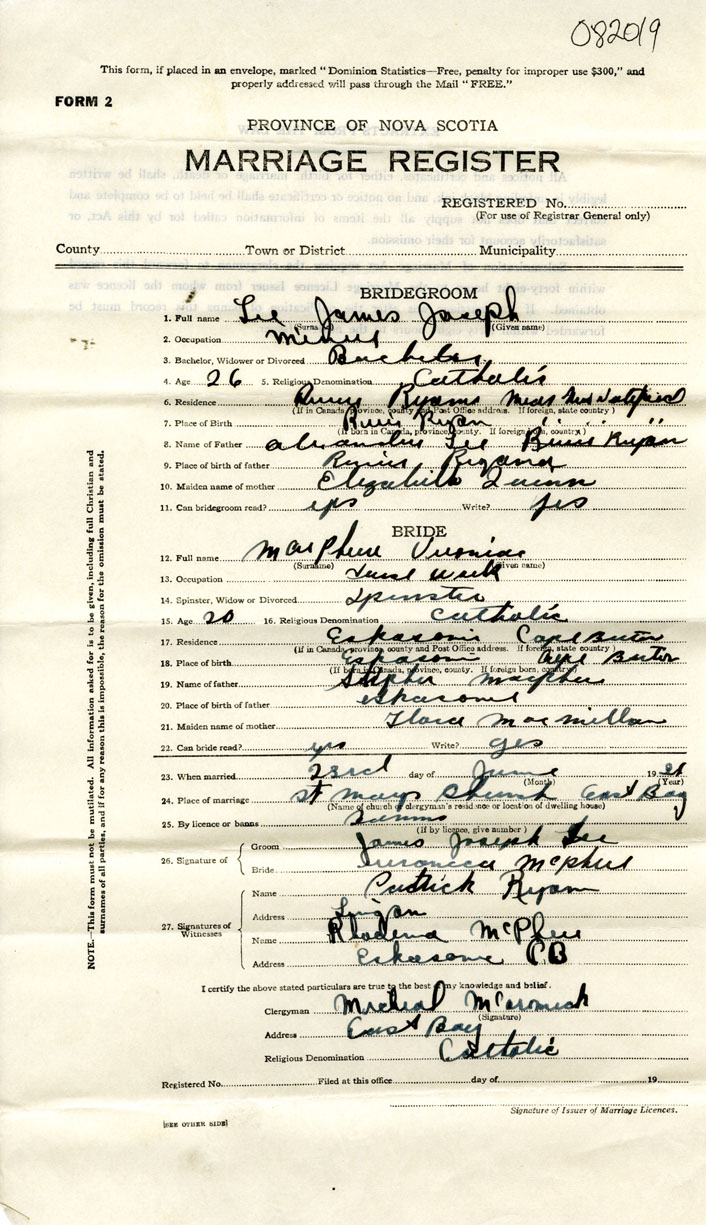 082019
This form, if placed in an envelope, marked "Dominion Statistics—Free, penalty for improper use $300," and
properly addressed will pass through the Mail "FREE."
FORM 2
PROVINCE OF NOVA SCOTIA
MARRIAGE REGISTER
REGISTERED No.
(For use of Registrar General only)
County Town or District Municipality
BRIDEGROOM
1. Full name Lee James Joseph
(Surname) (Given name)
2. Occupation
3. Bachelor, Widower or Divorced Bachelor
4. Age 26 5. Religious Denomination Catholic
6. Residence
(If in Canada, province, county and Post Office address. If foreign, state country)
7. Place of Birth Ryan
(If born in Canada, province, county. If foreign born, country)
8. Name of Father Lee
9. Place of birth of father
10. Maiden name of mother Elizabeth Quinn
11. Can bridegroom read? yes Write? yes
BRIDE
12. Full name
(Surname) (Given name)
13. Occupation work
14. Spinster, Widow or Divorced Spinster
15. Age 20 16. Religious Denomination Catholic
17. Residence Eskasoni Cape Breton
(If in Canada, province, county and Post Office address. If foreign, state country)
18. Place of birth Eskasoni Cape Breton
(If born in Canada, province, county. If foreign born, country)
19. Name of father
20. Place of birth of father Eskasoni
21. Maiden name of mother Flora MacMillan
22. Can bride read? yes Write? yes
23. When married 23rd day of June 19
(Month) (Year)
24. Place of marriage St Marys Church East Bay
(Name of church or clergyman's residence or location of dwelling house)
25. By licence or banns Banns
(If by licence, give number)
26. Signature of Groom James Joseph Lee
Bride
27. Signatures of Witnesses Name Patrick Ryan
Address Lingan
Name McPhee
Address Eskasoni CB
I certify the above stated particulars are true to the best of my knowledge and belief.
Clergyman
(Signature)
Address East Bay
Religious Denomination Catholic
Registered No. Filed at this office day of 19
Signature of Issuer of Marriage Licences.
[SEE OTHER SIDE]
NOTE.—This form must not be mutilated. All information asked for is to be given, including full Christian and
surnames of all parties, and if for any reason this is impossible, the reason for the omission must be stated.